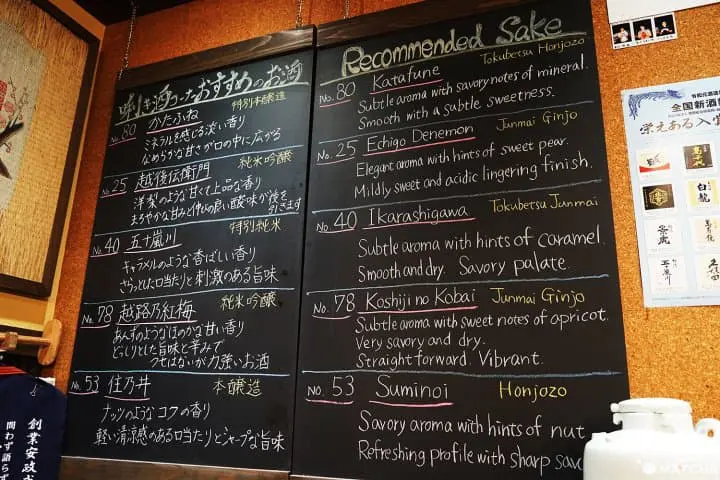 唎き酒コーナーおすすめのお酒
特別本醸造
No.80 かたふね
ミネラルを感じる淡い香り
なめらかな甘さが口の中に広がる
純米吟醸
No.25 越後伝衛門
洋梨のような甘くて上品な香り
まろやかな甘みと伸びの良い酸味が後を引きます
特別純米
No.40 五十嵐川
キャラメルのような香ばしい香り
さらっとした口当たりと刺激のある旨味
純米吟醸
No.78 越路乃紅梅
あんずのようなほのかな甘い香り
どっしりとした旨味と辛みで
つせはないが力強いお酒
No.53 住乃井 本醸造
ナッツのようなコクの香り
軽い清涼感のある口当たりとシャープな旨味
Recommended Sake
Tokubetsu Honjozo
No.80 Katafune
Subtle aroma with savory notes of mineral.
Smooth with a subtle sweetness.
No.25 Echigo Denemon Junmai Ginjo
Elegant aroma with hints of sweet pear.
Mildly sweet and acidic lingering finish.
No.40 Ikarashigawa Tokubetsu Junmai
Subtle aroma with hints of caramel.
Smooth and dry. Savory palate.
No.78 Koshiji no Kobai Junmai Ginjo
Subtle aroma with sweet notes of apricot.
Very savory and dry.
Straight forward. Vibrant.
No.53 Suminoi Honjozo
Savory aroma with hints of nut
Refreshing profile with sharp
全国新酒
栄えある入賞
白龍
創業安政
問わず語らず